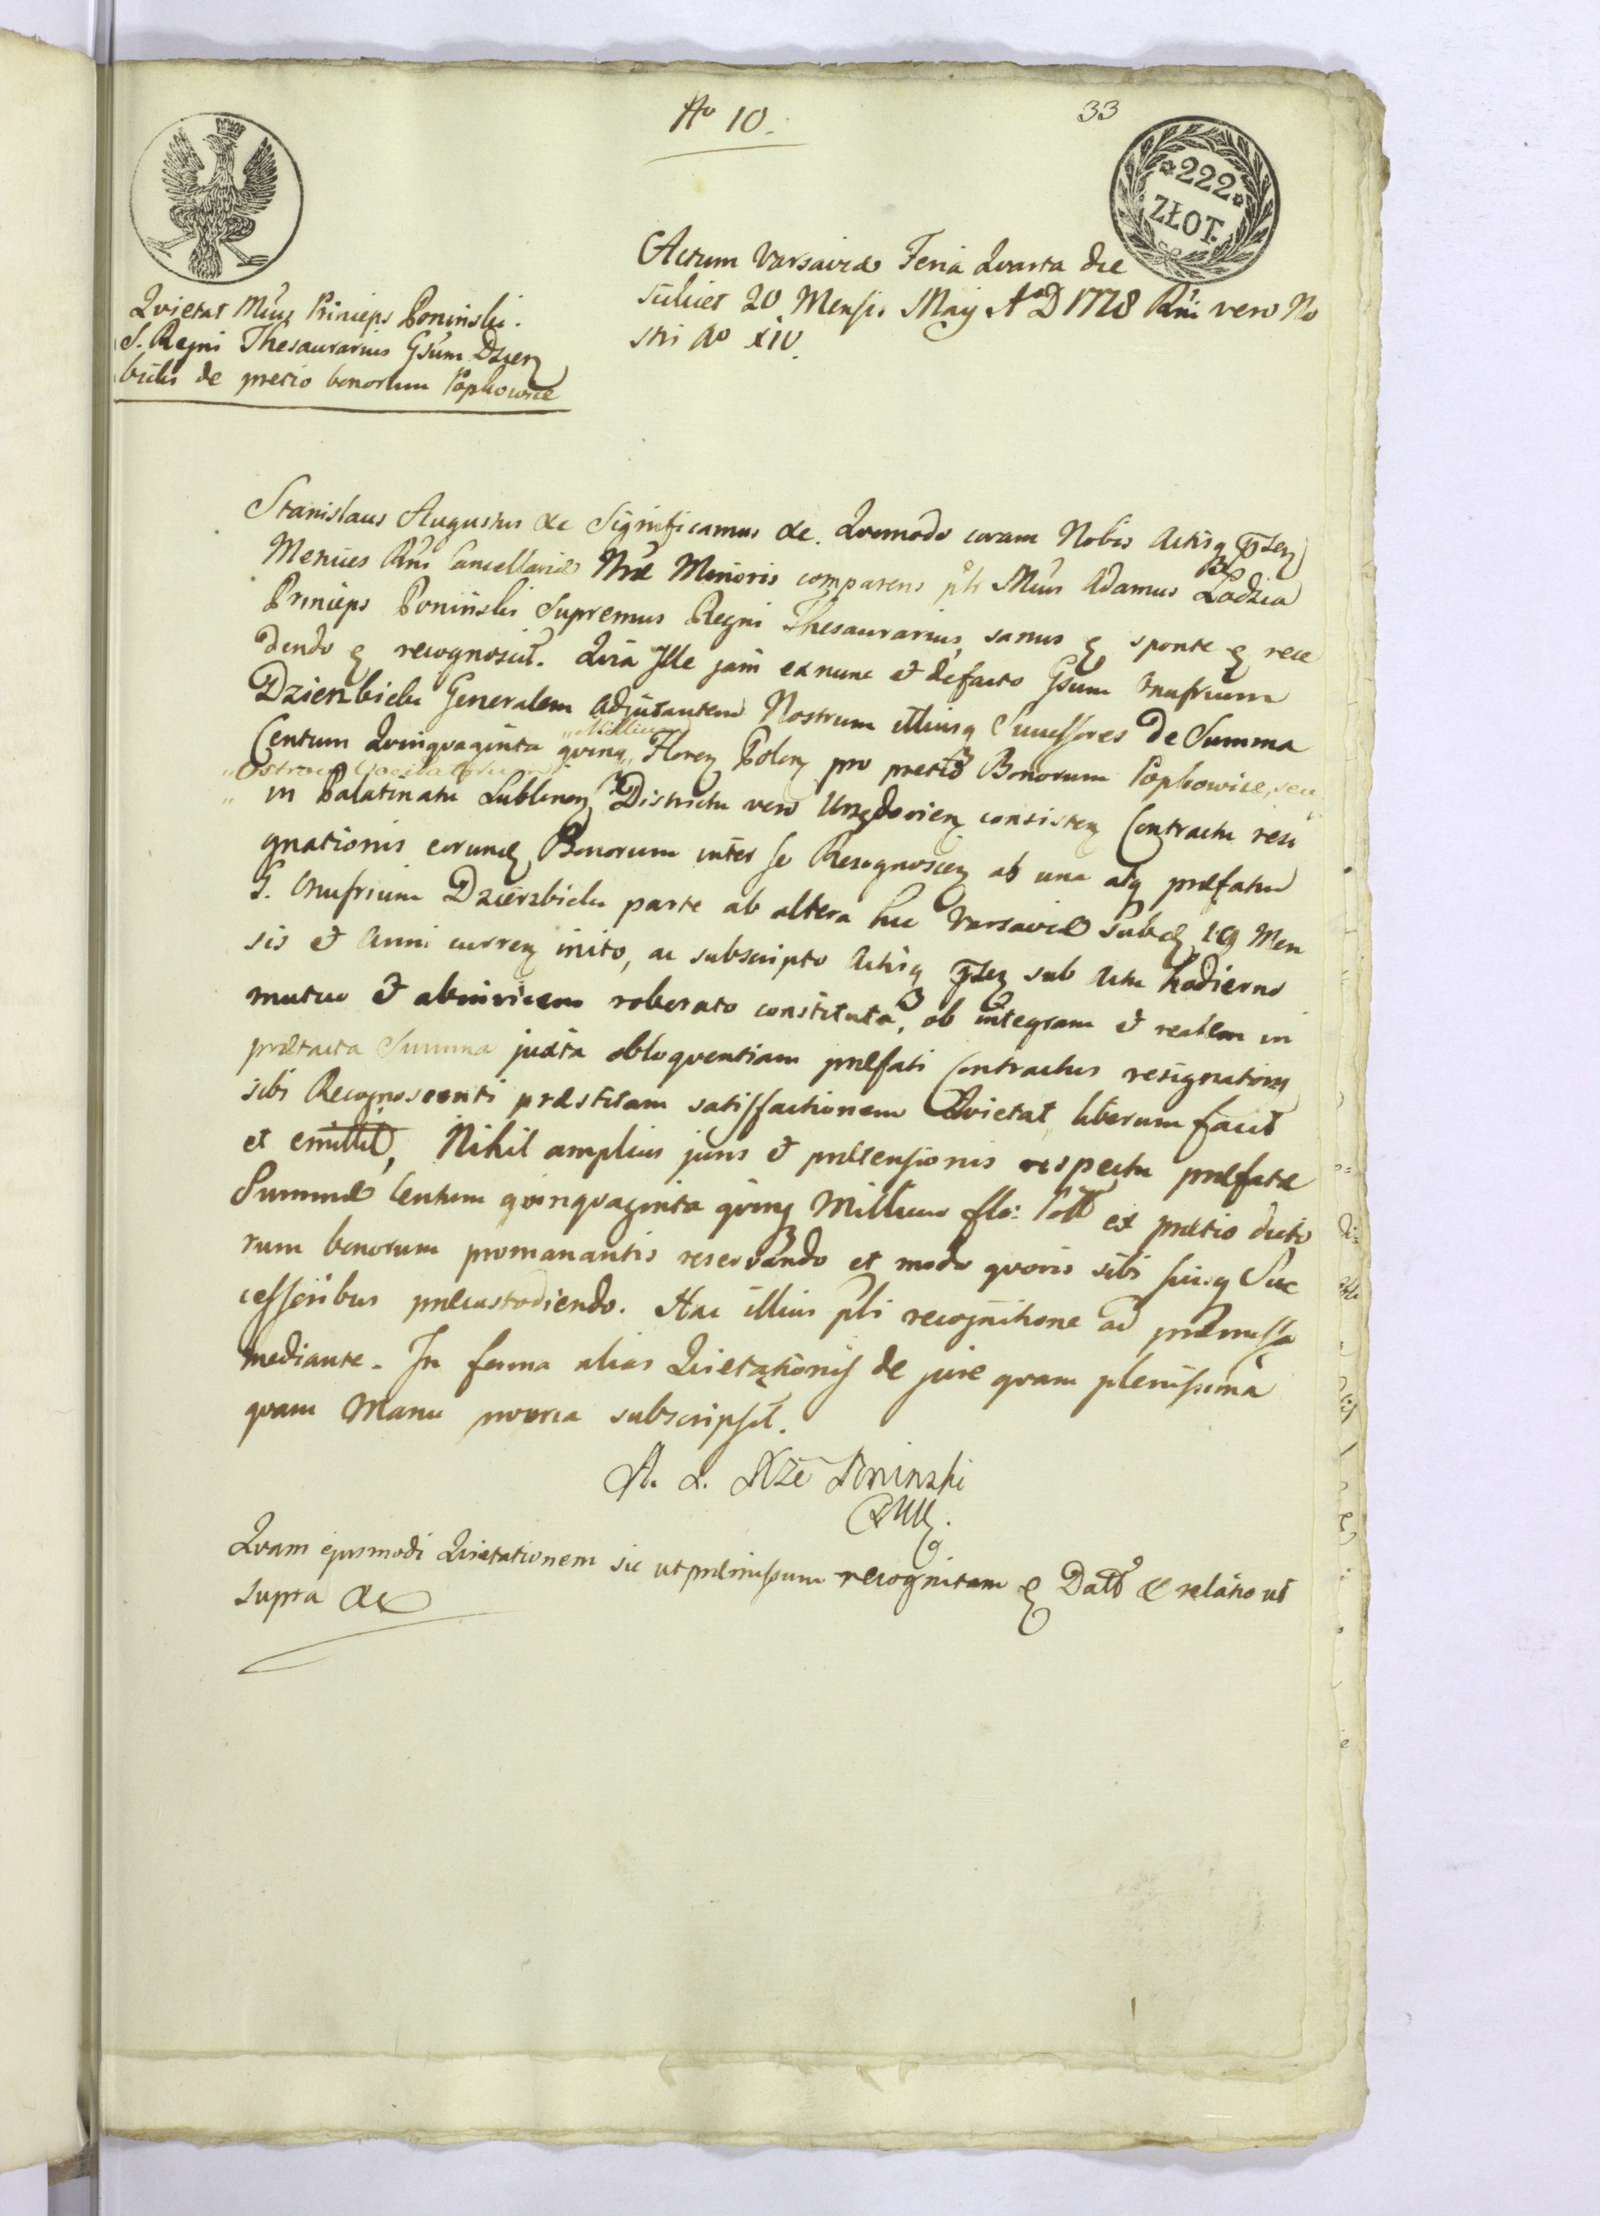 No 10.
33
*222*
ZŁOT.
Actum Varsaviæ Feria Quarta die
scilicet 20 Mensis Maij A D 1778 Rni vero No
stri Ao XIV.
Quietat Mcus Princeps Poninski
S. Regni Thesaurarius Gsum Dzierz
bicki de pretio bonorum Popkowice
Stanislaus Augustus &c Significamus &c. Quomodo coram Nobis Actisq
Cancellariæ Nræ Minoris comparens Adamus Lodzia
Princeps Poniński Supremus Regni Thesaurarius, sanus sponte rece
dendo recognovit. Quia Ille jam ex nunc et de facto Gsum Onufrium
Dzierzbicki Generalem Adjutantem Nostrum illiusq Successores De Summa
Centum Quinquaginta quinq „Millium„ Floren Polon pro pretio Bonorum Popkowice, seu
„Ostrow
in Palatinatu Lublinen Districtu vero Urzędovien consisten Contractu resi
gnationis eorund Bonorum inter se Recognoscen ab una atq præfatum
G. Onufrium Dzierzbicki parte ab altera hic Varsaviæ sub d 19 Men
sis et Anni curren inito, ac subscripto Actisq sub Actu hodierno
mutuo et abinvicem roborato constituta, ob integram et realem in
prætacta Summa juxta obloquentiam præfati Contractus resignationis
sibi Recognoscenti præstitam satisfactionem Quietat, liberum facit
et emittit, Nihil amplius juris et prætensionis respectu præfatæ
Summæ Centum quinquaginta quinq Millium flo: Poll ex prætio dicto
rum bonorum promanantis reservando et modo quovis sibi suisq Suc
cessoribus præcustodiendo. Hac illius recognitione ad præmissa
mediante. In forma alias Quietationis de jure quam plenissima
quam Manu propria subscripsit.
A. Ł. Xże Poninski
Quam ejusmodi Quietationem sic ut præmissum recognitam & relatio ut
supra &c